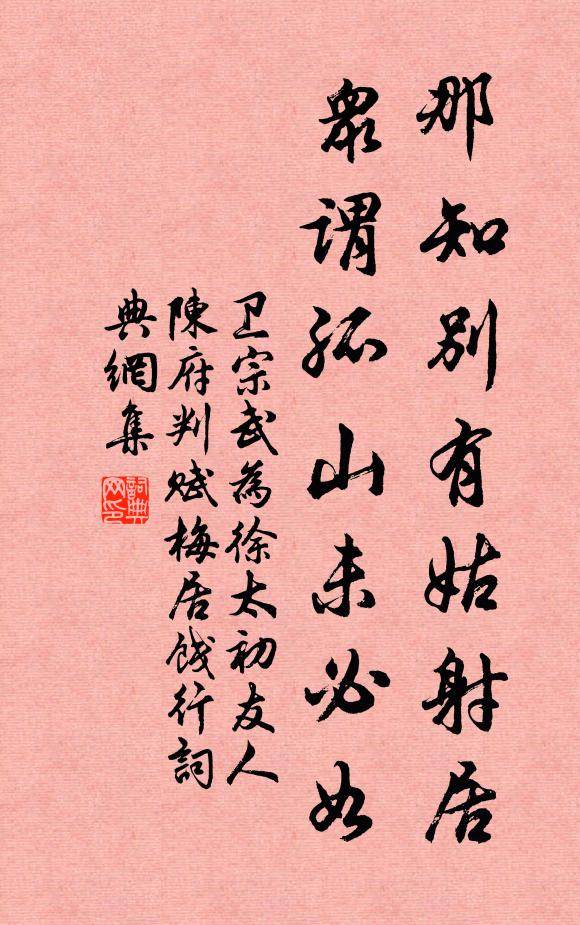 那知別有姑射居
眾謂孤山未必如
卫宗武為徐太初友人
陳府判赋梅居饯行詞
典網集
詞典网印